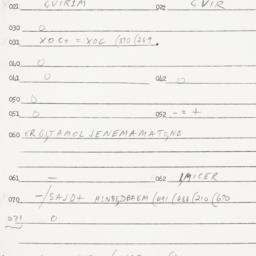 021 GVIRIM 022 GVIR
030 0
033 XOC+ = XOG (370 (269.
040 0
041 0 042 0
050 0
051 0 052 - = +
060 ERGITAMOLJENEMAMATONE
061 - 062 AMICER
070 -/SAJD+ MINBEDBREM (091 (288 (210 (670
071 0